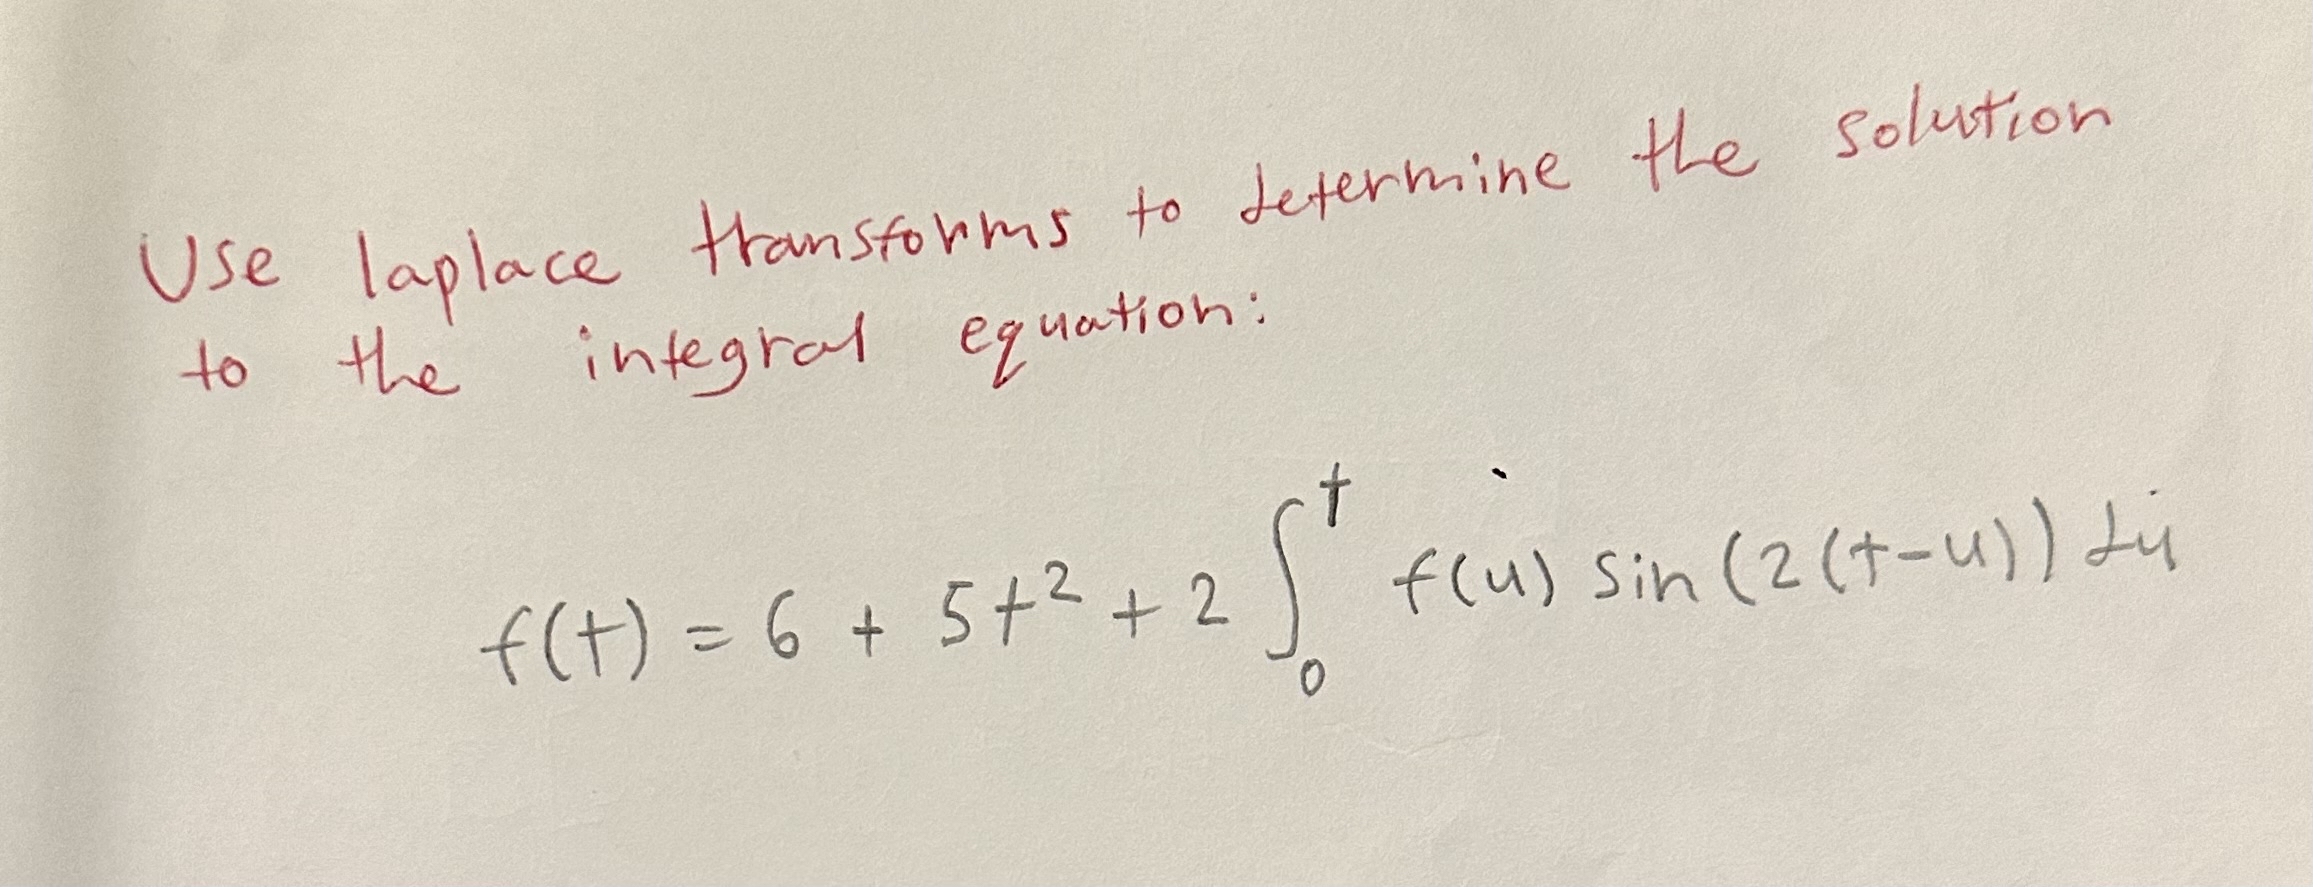 Use laplace transforms to determine the solution
to the integral equation:
f(t) = 6 + 5t² + 2 ∫₀ᵗ f(u) sin(2(t-u)) du